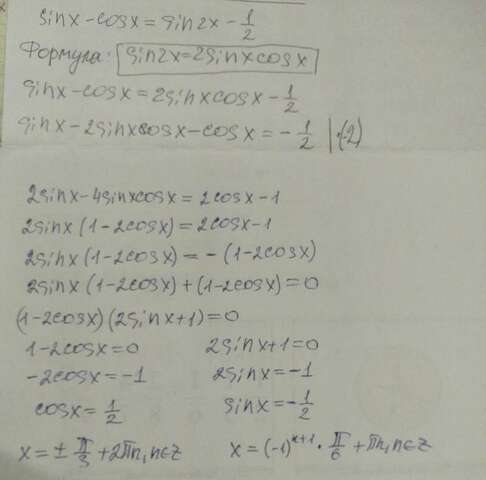 sinx-cosx=sin2x-1/2
Формула: sin2x=2sinxcosx
sinx-cosx=2sinxcosx-1/2
sinx-2sinxcosx-cosx=-1/2 |·(-2)
2sinx-4sinxcosx=2cosx-1
2sinx(1-2cosx)=2cosx-1
2sinx(1-2cosx)=-(1-2cosx)
2sinx(1-2cosx)+(1-2cosx)=0
(1-2cosx)(2sinx+1)=0
1-2cosx=0 2sinx+1=0
-2cosx=-1 2sinx=-1
cosx=1/2 sinx=-1/2
x=±π/3+2πn, n∈z x=(-1)^(n+1)·π/6+πn, n∈z